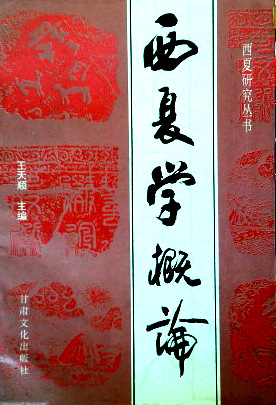 西夏研究丛书
西夏学概論
王天顺 主编
甘肃文化出版社